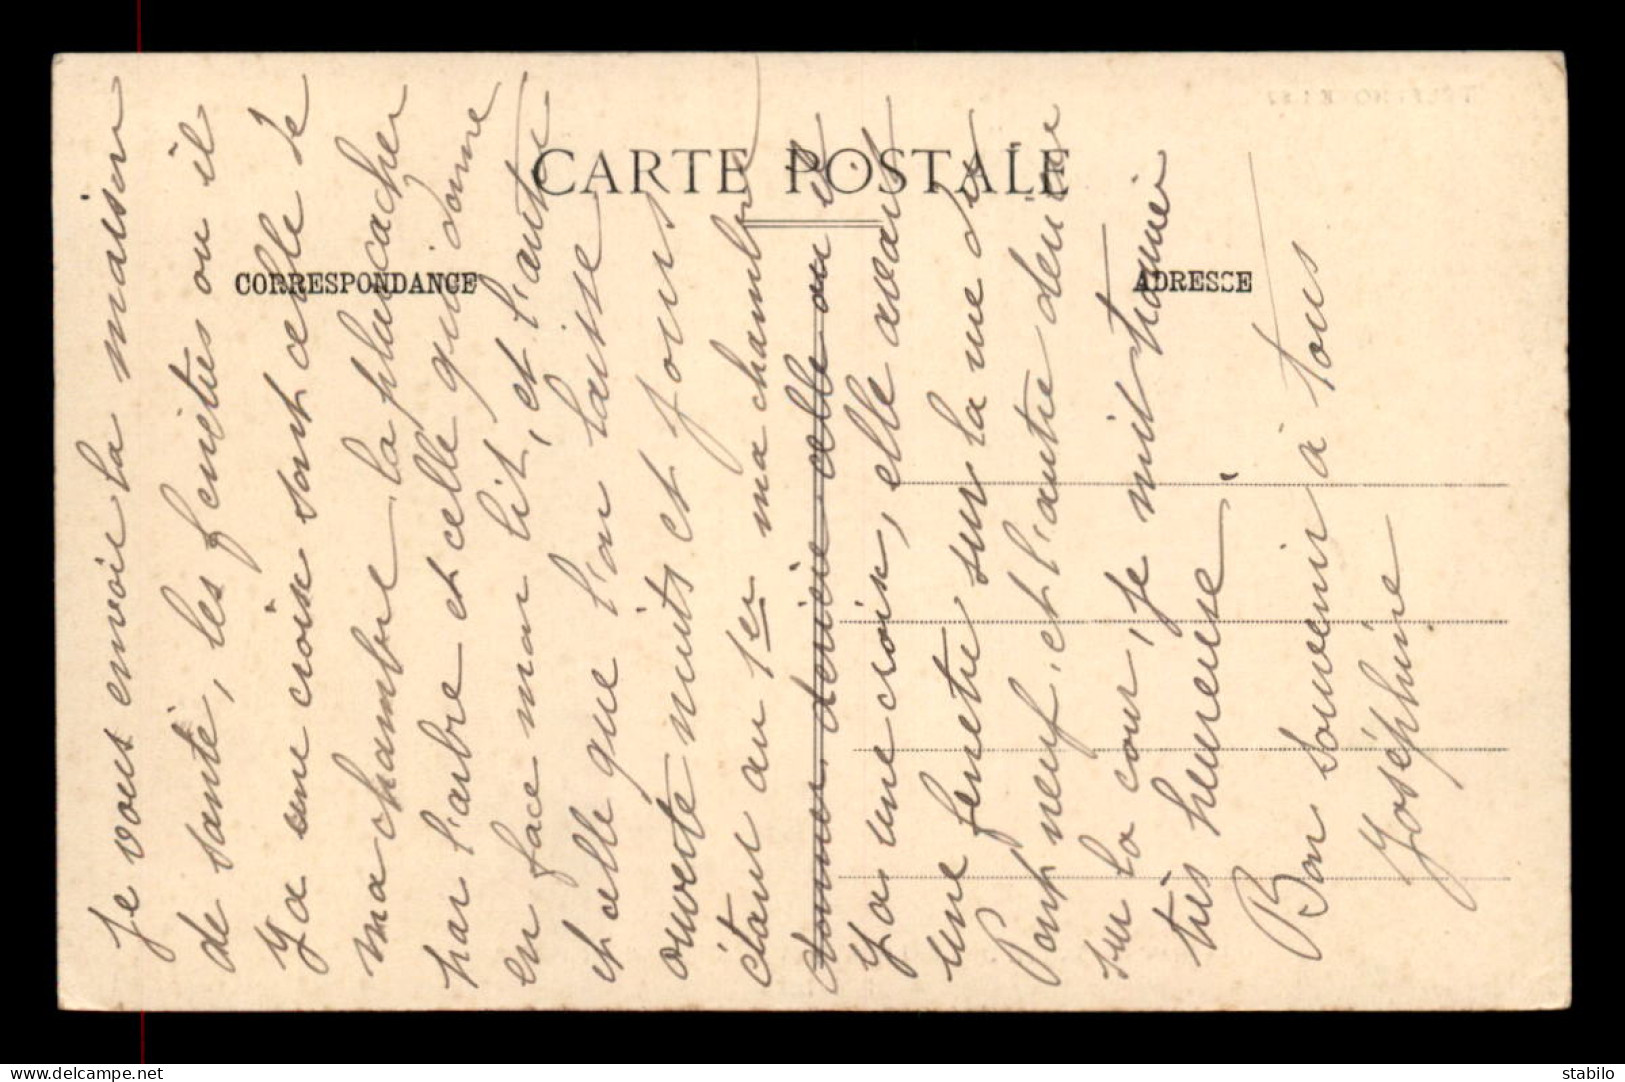 CARTE POSTALE
CORRESPONDANCE
ADRESSE
Je vous envoie la maison
de santé, les fenêtres ou il
Y a une croise sont celle de
ma chambre la plus cacher
par l'arbre et celle qui donne
en face mon lit, et l'autre
et celle que l'on laisse
ouverte nuits et jours
étant au 1er ma chambre
Y a une croix, elle
une fenetre sur la rue du
Pont neuf, et l'autre
sur la cour, Je
très heureuse
Bon souvenir à tous
Joséphine
www.delcampe.net
stabilo